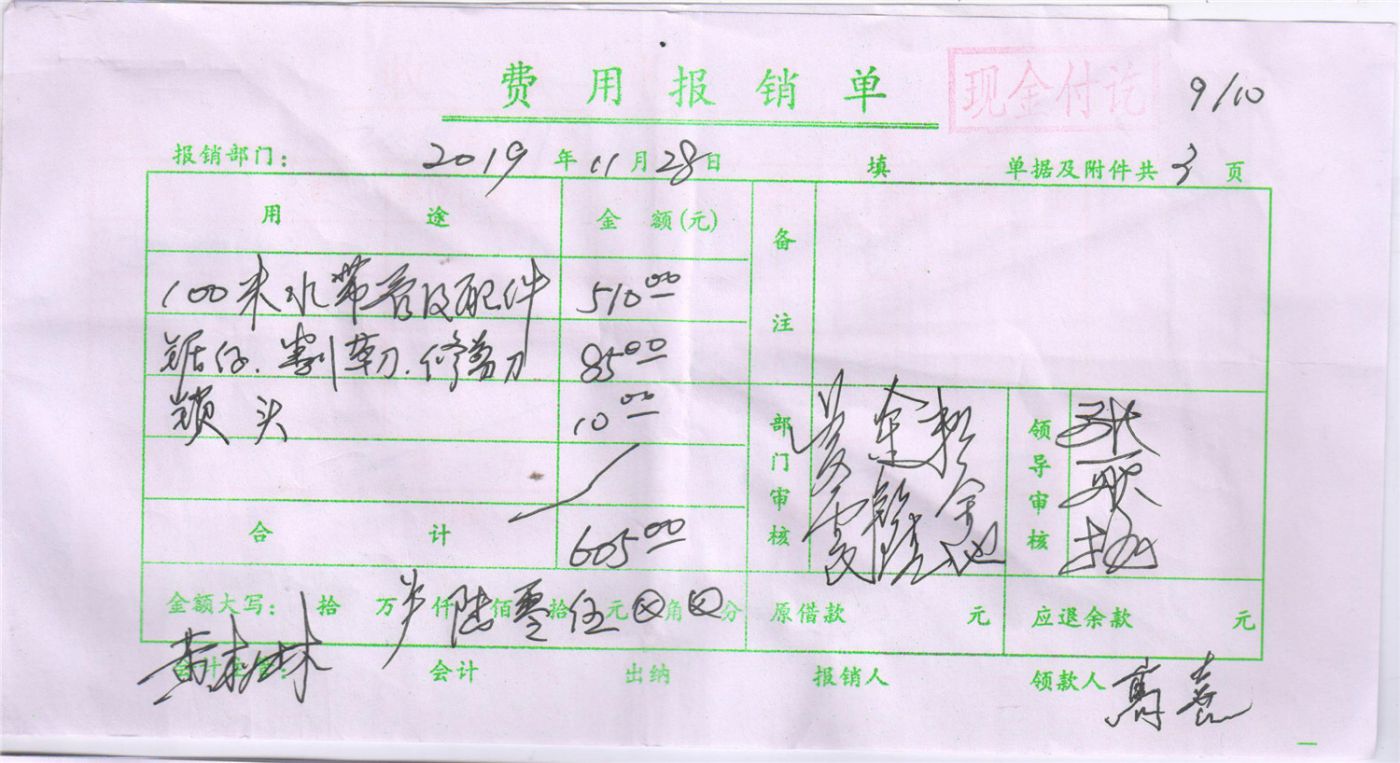 费用报销单 现金付讫 9/10
报销部门： 2019年11月28日 填 单据及附件共3页
用途 金额(元) 备注
100米水带 及配件 510.00
锯仔.割草刀.修剪刀 85.00
锁头 10.00
部门审核 领导审核
合计 605.00
金额大写： 拾 万 仟陆佰零拾伍元⊗角⊗分 原借款 元 应退余款 元
会计 出纳 报销人 领款人